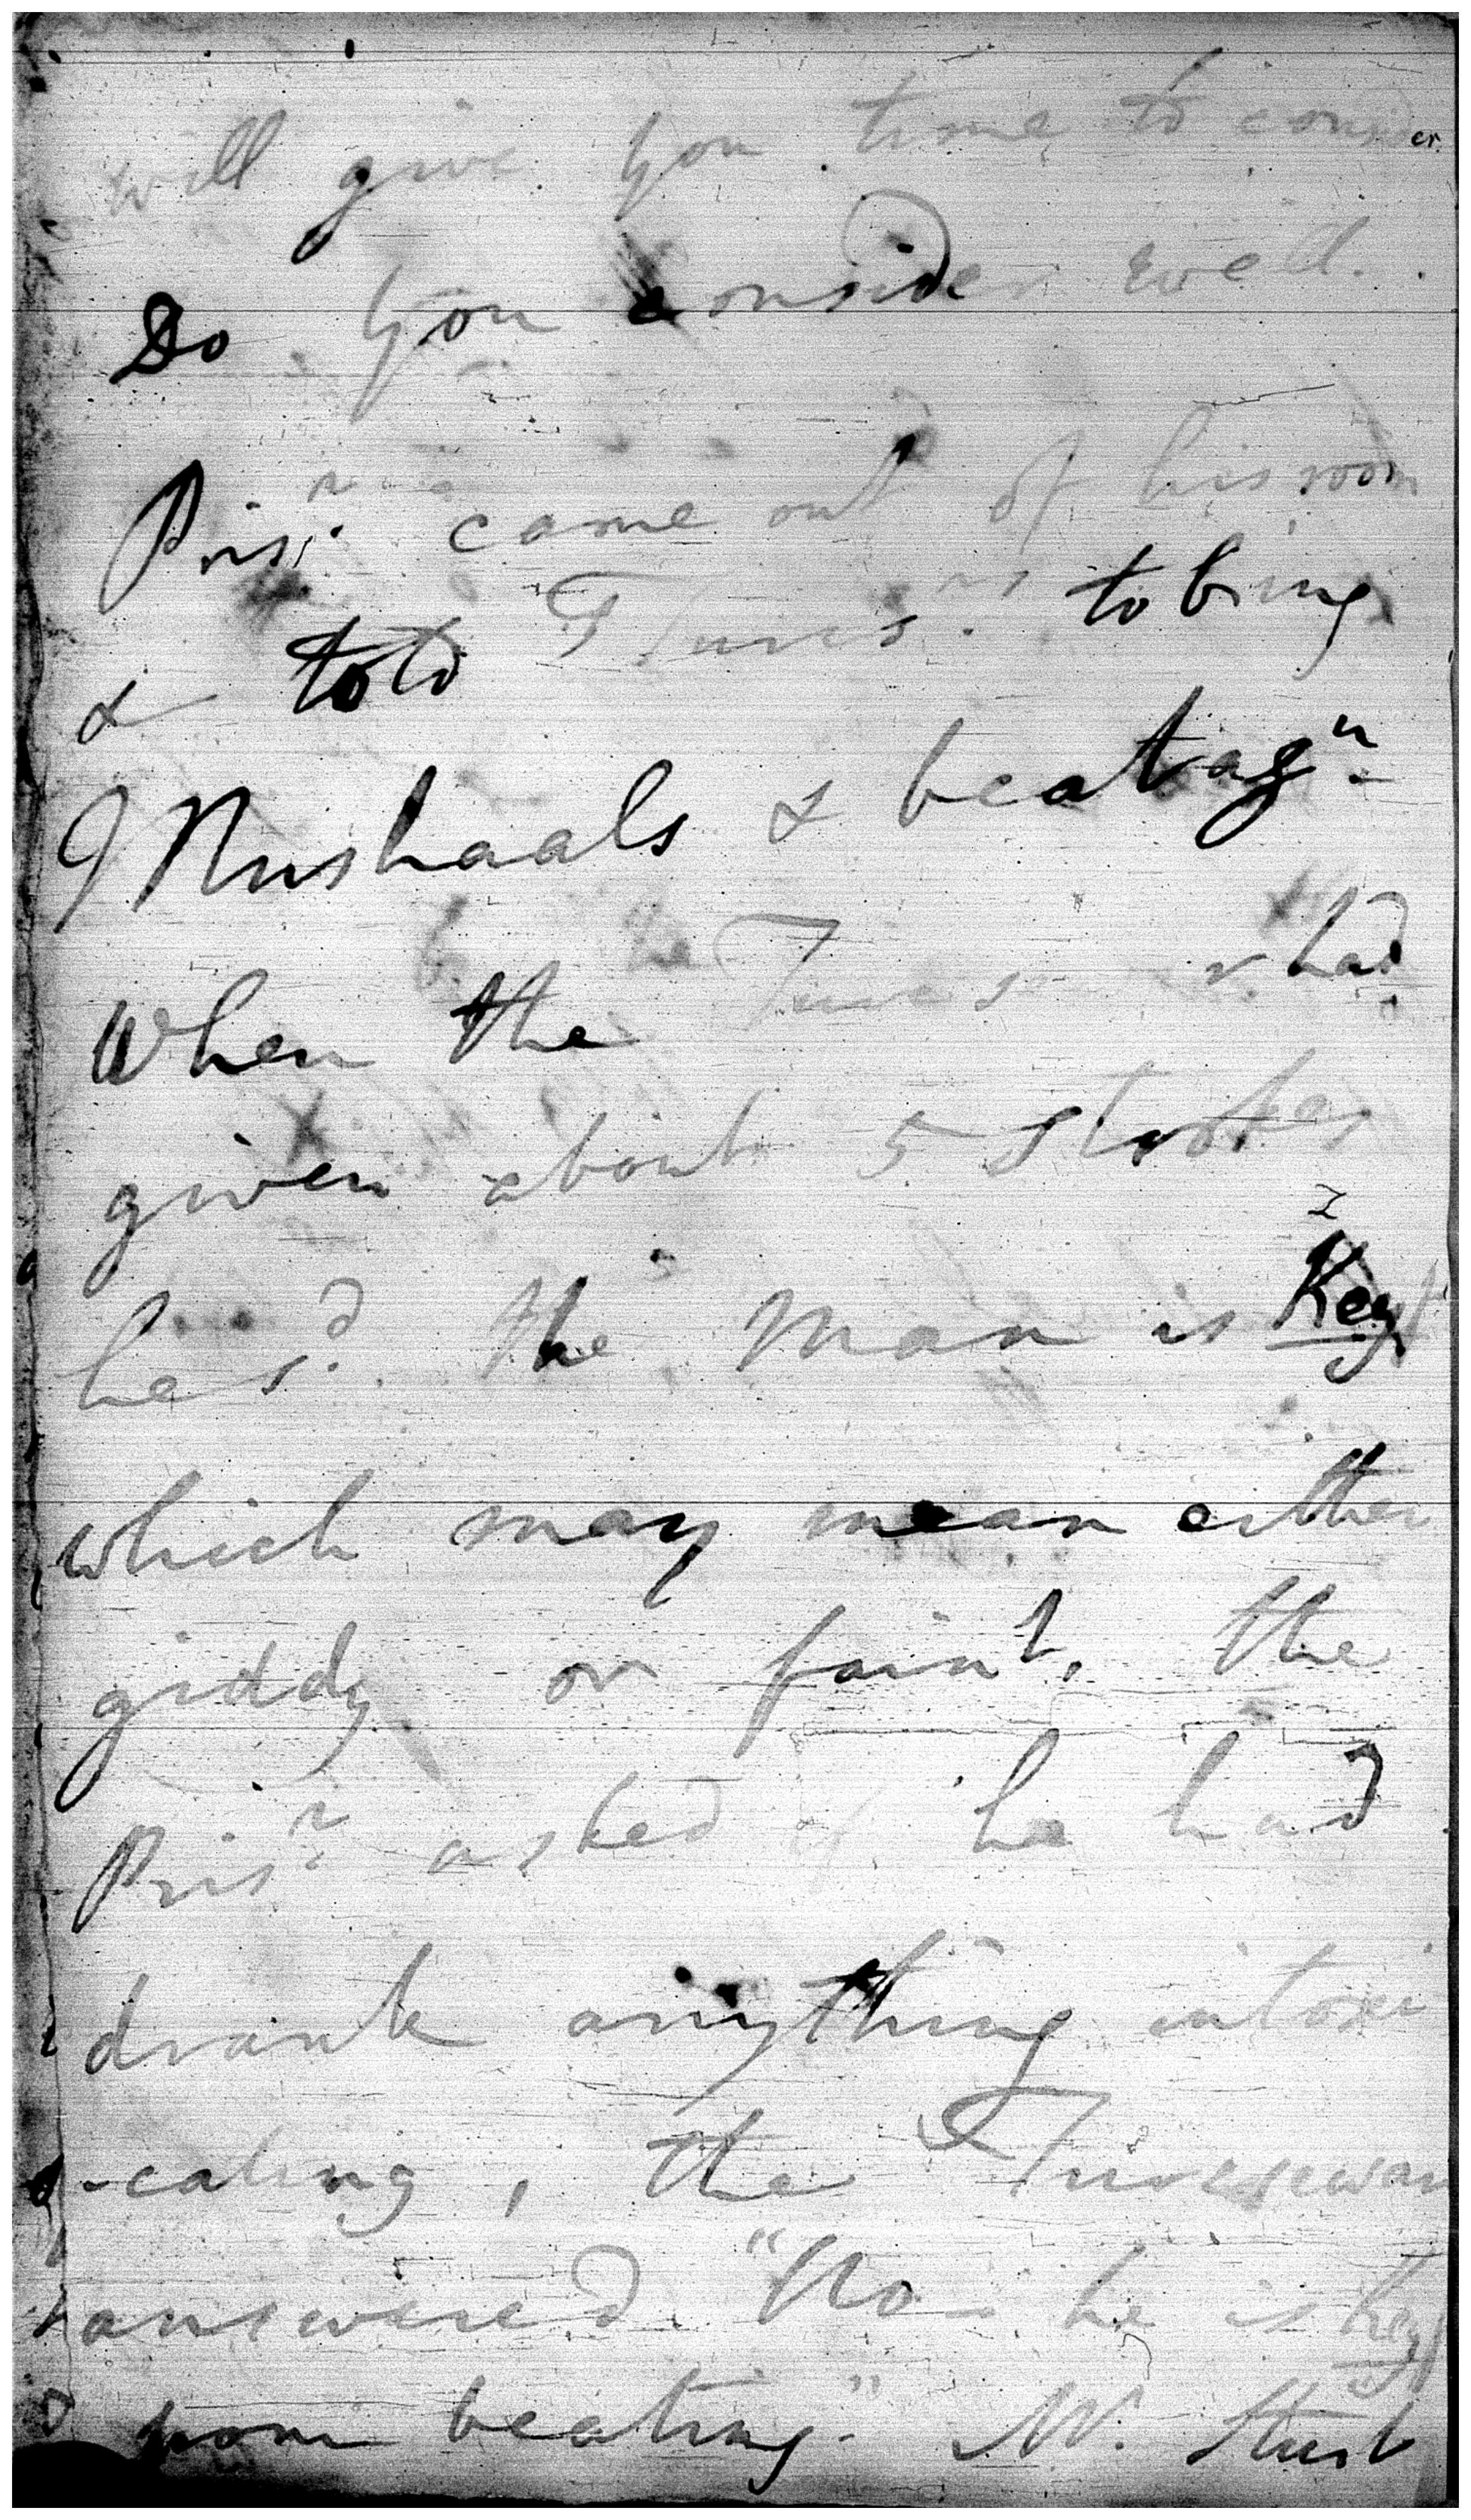 will give you time to consider
Do you consider well.
Pris.r came out of his room
& told to bring
Mushaals & beat ag.n
When the had
given about 5 strokes
he s.d the man is Key
which may mean either
giddy or faint, the
Pris.r asked if he had
drank anything intoxi
-cating, the
answered "No he is Key
from beating." W. Sturt